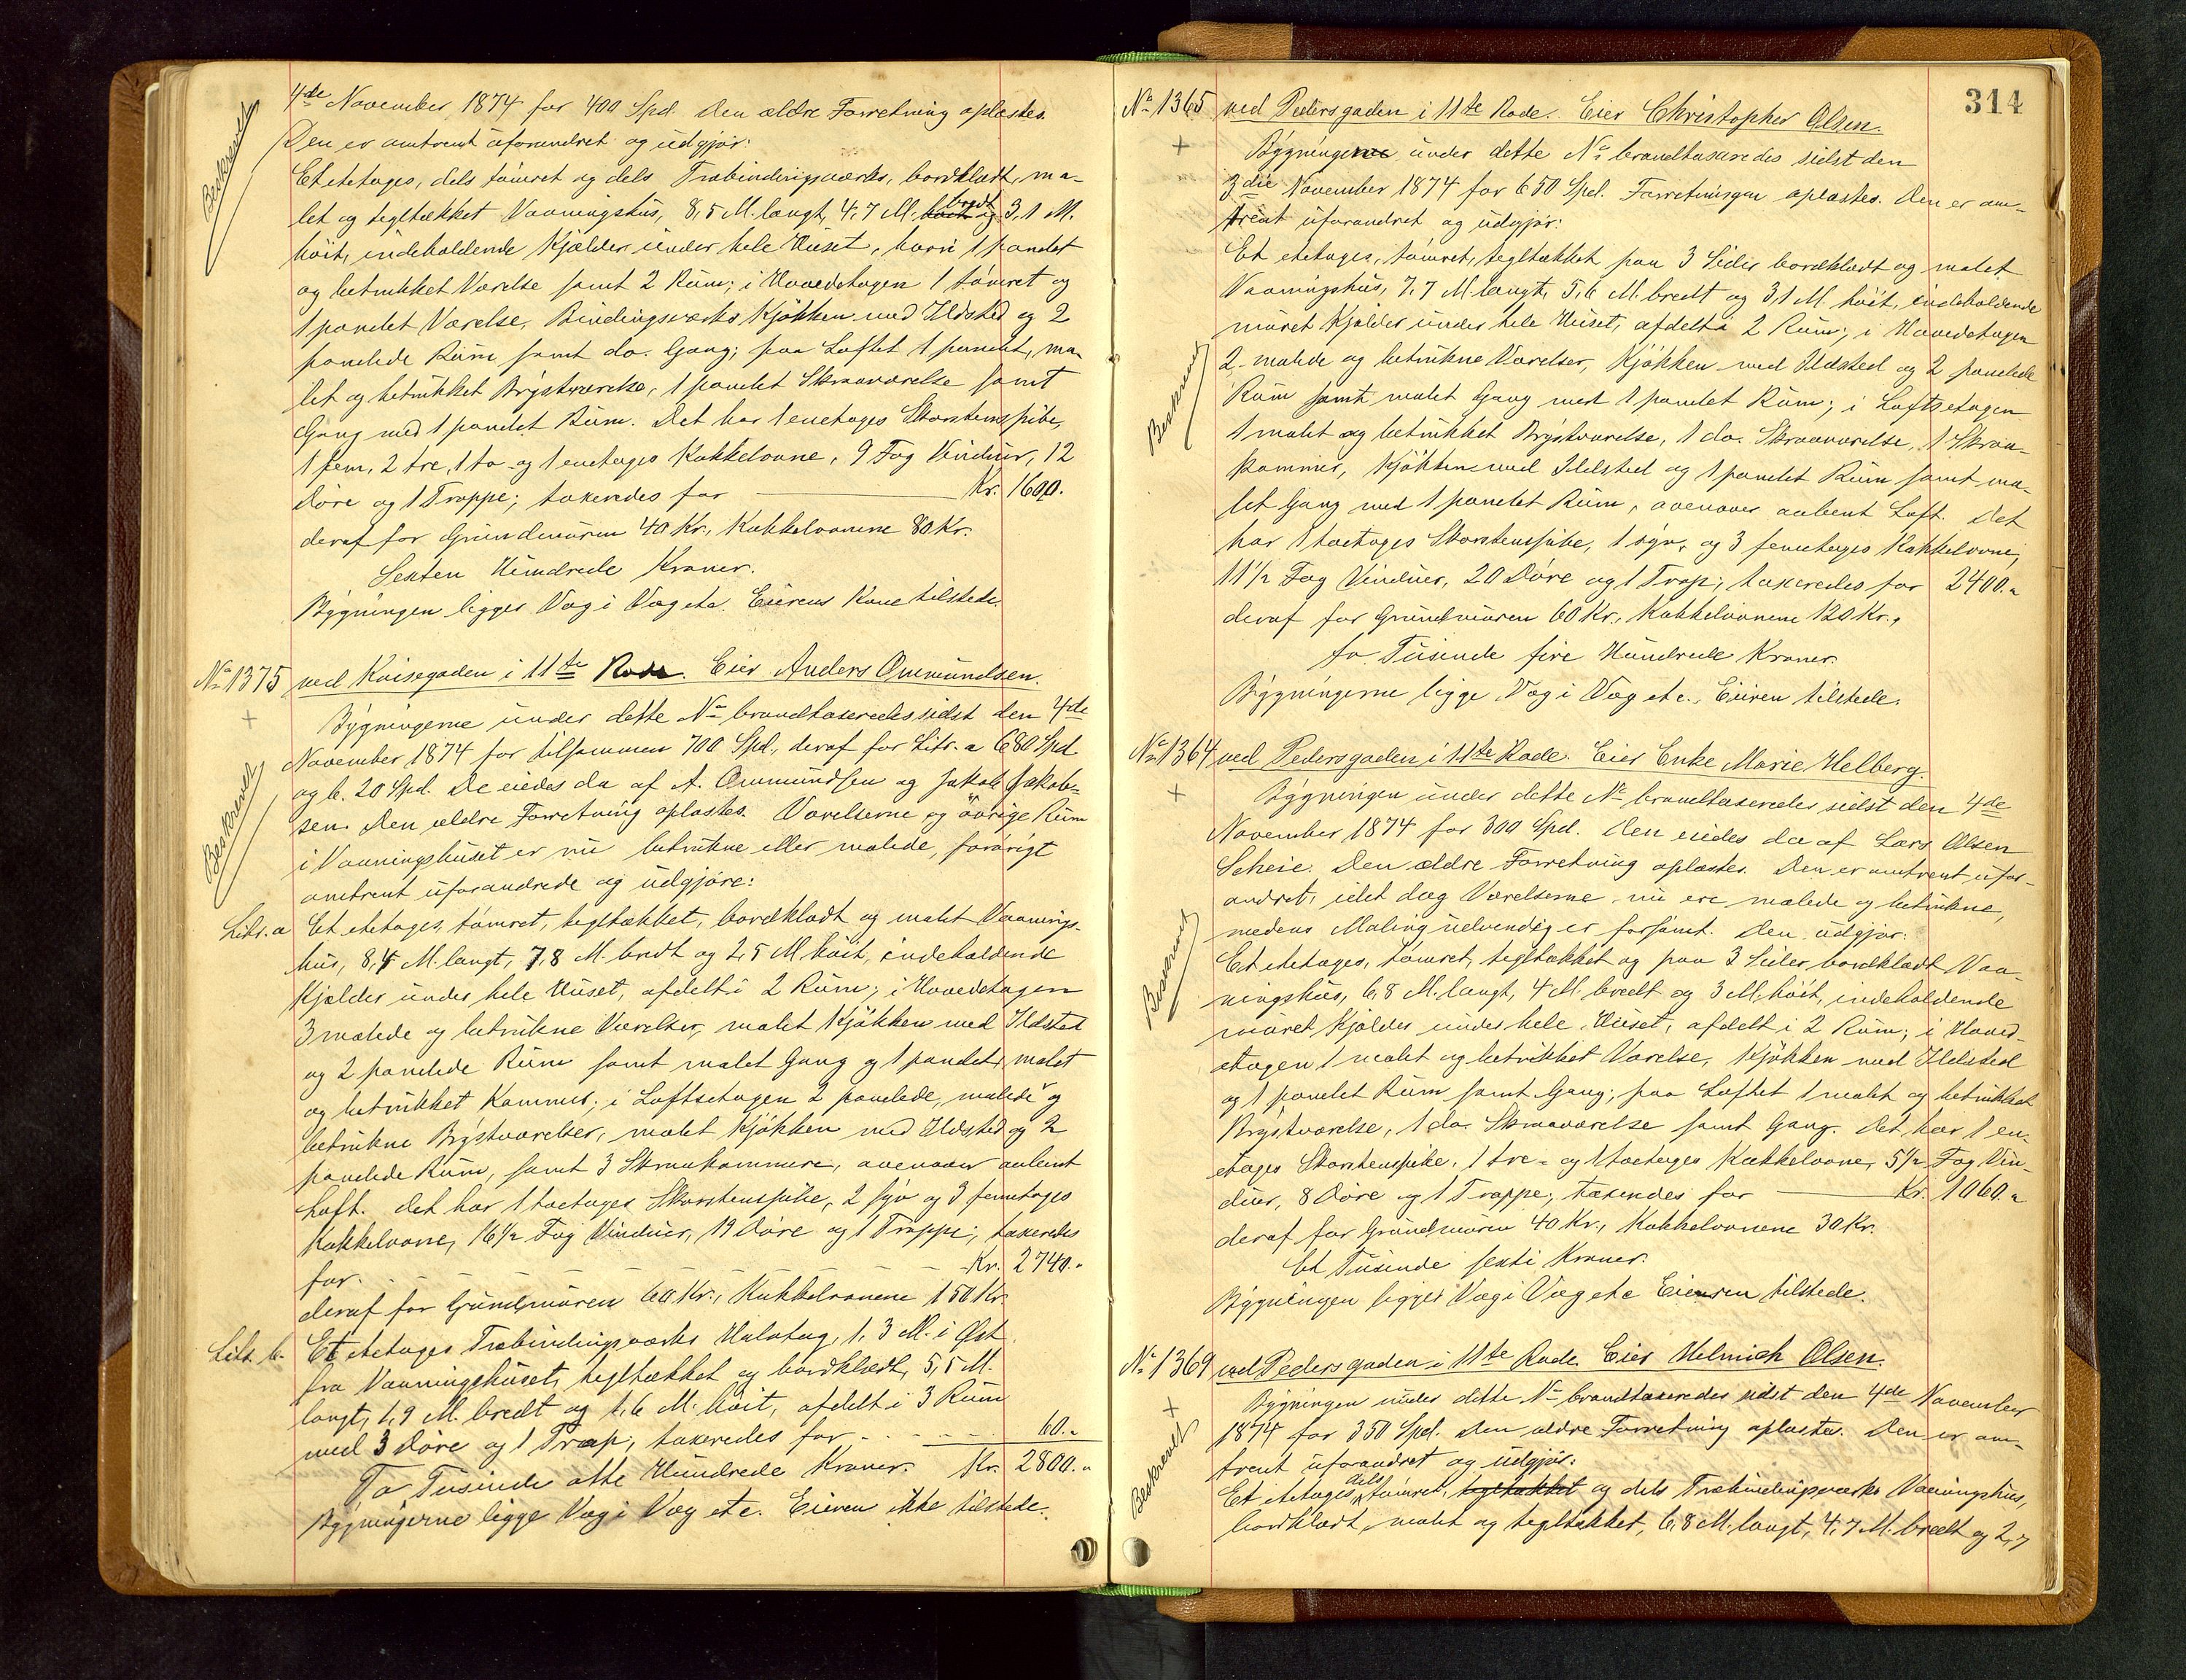 4de November 1874 for 400 Spd. Den ældre Forretning oplæstes.
Beskrevet
Den er omtrent uforandret og udgjør:
Et etetages, dels tømret og dels Træbindingsværks, bordklædt, ma-
let og tegltækket Vaaningshus, 8,5 M. langt, 4,7 M. bredt og 3,1 M.
høit, indeholdende Kjælder under hele Huset, hvori 1 panelet
og betrukket Værelse samt 2 Rum; i Hovedetagen 1 tømret og
1 panelet Værelse, Bindingsværks Kjøkken med Ildsted og 2
panelede Rum samt do. Gang; paa Loftet 1 panelet, ma-
let og betrukket Brystværelse, 1 panelet Skraaværelse samt
Gang med 1 panelet Rum. Det har 1 enetages Skorstenspibe,
1 fem, 2 tre, 1 to- og 1 enetages Kakkelovne, 9 Fag Vinduer, 12
Døre og 1 Trappe; taxeredes for Kr. 1600.
deraf for Grundmuren 40 Kr., Kakkelovnene 80 Kr.
Sexten Hundrede Kroner.
Bygningen ligger Væg i Væg etc. Eierens Kone tilstede.
No 1375 ved Kaisegaden i 11te Rode. Eier Anders Ommundsen.
Bygningerne under dette No brandtaxeredes sidst den 4de
November 1874 for tilsammen 700 Spd., deraf for Litr. a 680 Spd
og b. 20 Spd. De eiedes da af A. Ommundsen og Jakob Jakob-
sen. Den ældre Forretning oplæstes. Værelserne og øvrige Rum
Beskrevet
i Vaaningshuset er nu betrukne eller malede, forøvrigt
omtrent uforandrede og udgjøre:
Litr. a Et etetages, tømret, tegltækket, bordklædt og malet Vaanings-
hus, 8,4 M. langt, 7,8 M. bredt og 2,5 M høit, indeholdende
Kjælder under hele Huset, afdelt i 2 Rum; i Hovedetagen
3 malede og betrukne Værelser, malet Kjøkken med Ildsted
og 2 panelede Rum samt malet Gang og 1 panelet, malet
og betrukket Kammer; i Loftsetagen 2 panelede, malede og
betrukne Brystværelser, malet Kjøkken med Ildsted og 2
panelede Rum, samt 3 Skraakammere, ovenover aabent
Loft. Det har 1 toetages Skorstenspibe, 2 syv og 3 femetages
Kakkelovne, 16 1/2 Fag Vinduer, 19 Døre og 1 Trappe; taxeredes
for Kr. 2740.-
deraf for Grundmuren 60 Kr., Kakkelovnene 150 Kr.
Litr. b. Et etetages Træbindingsværks Halvtag, 1,3 M. i Øst
fra Vaaningshuset, tegltækket og bordklædt, 5,5 M.
langt, 1,9 M. bredt og 1,6 M. høit, afdelt i 3 Rum
med 3 Døre og 1 Trap; taxeredes for 60.-
To Tusinde otte Hundrede Kroner. Kr. 2800.-
Bygningerne ligge Væg i Væg etc. Eieren ikke tilstede.
314
No 1365 ved Pedersgaden i 11te Rode. Eier Christopher Olsen.
Bygningerne under dette No brandtaxeredes sidst den
3die November 1874 for 650 Spd. Forretningen oplæstes. Den er om-
trent uforandret og udgjør:
Et etetages, tømret, tegltækket paa 3 Sider bordklædt og malet
Vaaningshus, 7,7 M. langt, 5,6 M. bredt og 3,1 M. høit, indeholdende
muret Kjælder under hele Huset, afdelt i 2 Rum; i Hovedetagen
Beskrevet
2 malede og betrukne Værelser, Kjøkken med Ildsted og 2 panelede
Rum samt malet Gang med 1 panelet Rum; i Loftsetagen
1 malet og betrukket Brystværelse, 1 do. Skraaværelse, 1 Skraa-
kammer, Kjøkken med Ildsted og 1 panelet Rum samt ma-
let Gang med 1 panelet Rum, ovenover aabent Loft. Det
har 1 toetages Skorstenspibe, 1 syv, og 3 femetages Kakkelovne,
11 1/2 Fag Vinduer, 20 Døre og 1 Trap; taxeredes for 2400.-
deraf for Grundmuren 60 Kr., Kakkelovnene 120 Kr.,
to Tusinde fire Hundrede Kroner.
Bygningerne ligge Væg i Væg etc. Eieren tilstede.
No 1364 ved Pedersgaden i 11te Rode. Eier Enke Marie Helberg.
Bygningen under dette No brandtaxeredes sidst den 4de
November 1874 for 300 Spd. Den eiedes da af Lars Olsen
Scheie. Den ældre Forretning oplæstes. Den er omtrent ufor-
andret, idet dog Værelserne nu ere malede og betrukne,
medens Maling udvendig er forsømt. Den udgjør:
Beskrevet
Et etetages, tømret, tegltækket og paa 3 Sider bordklædt Vaa-
ningshus, 6,8 M. langt, 4 M. bredt og 3 M. høit, indeholdende
muret Kjælder under hele Huset, afdelt i 2 Rum; i Hoved-
etagen 1 malet og betrukket Værelse, Kjøkken med Ildsted
og 1 panelet Rum samt Gang; paa Loftet 1 malet og betrukket
Brystværelse, 1 do. Skraaværelse samt Gang. Det har 1 en-
etages Skorstenspibe, 1 tre- og 1 toetages Kakkelovne, 5 1/2 Fag Vin-
duer, 8 Døre og 1 Trappe; taxeredes for Kr. 1060.-
deraf for Grundmuren 40 Kr., Kakkelovnene 30 Kr.
Et Tusinde sexti Kroner.
Bygningen ligger Væg i Væg etc Eieren tilstede.
No 1369 ved Pedersgaden i 11te Rode. Eier Helmich Olsen.
Bygningen under dette No brandtaxeredes sidst den 4de November
1874 for 350 Spd. Den ældre Forretning oplæstes. Den er om-
Beskrevet
trent uforandret og udgjør:
Et etetages, dels tømret, tegltækket og dels Træbindingsværks Vaaningshus,
bordklædt, malet og tegltækket, 6,8 M. langt, 4,7 M. bredt og 2,7